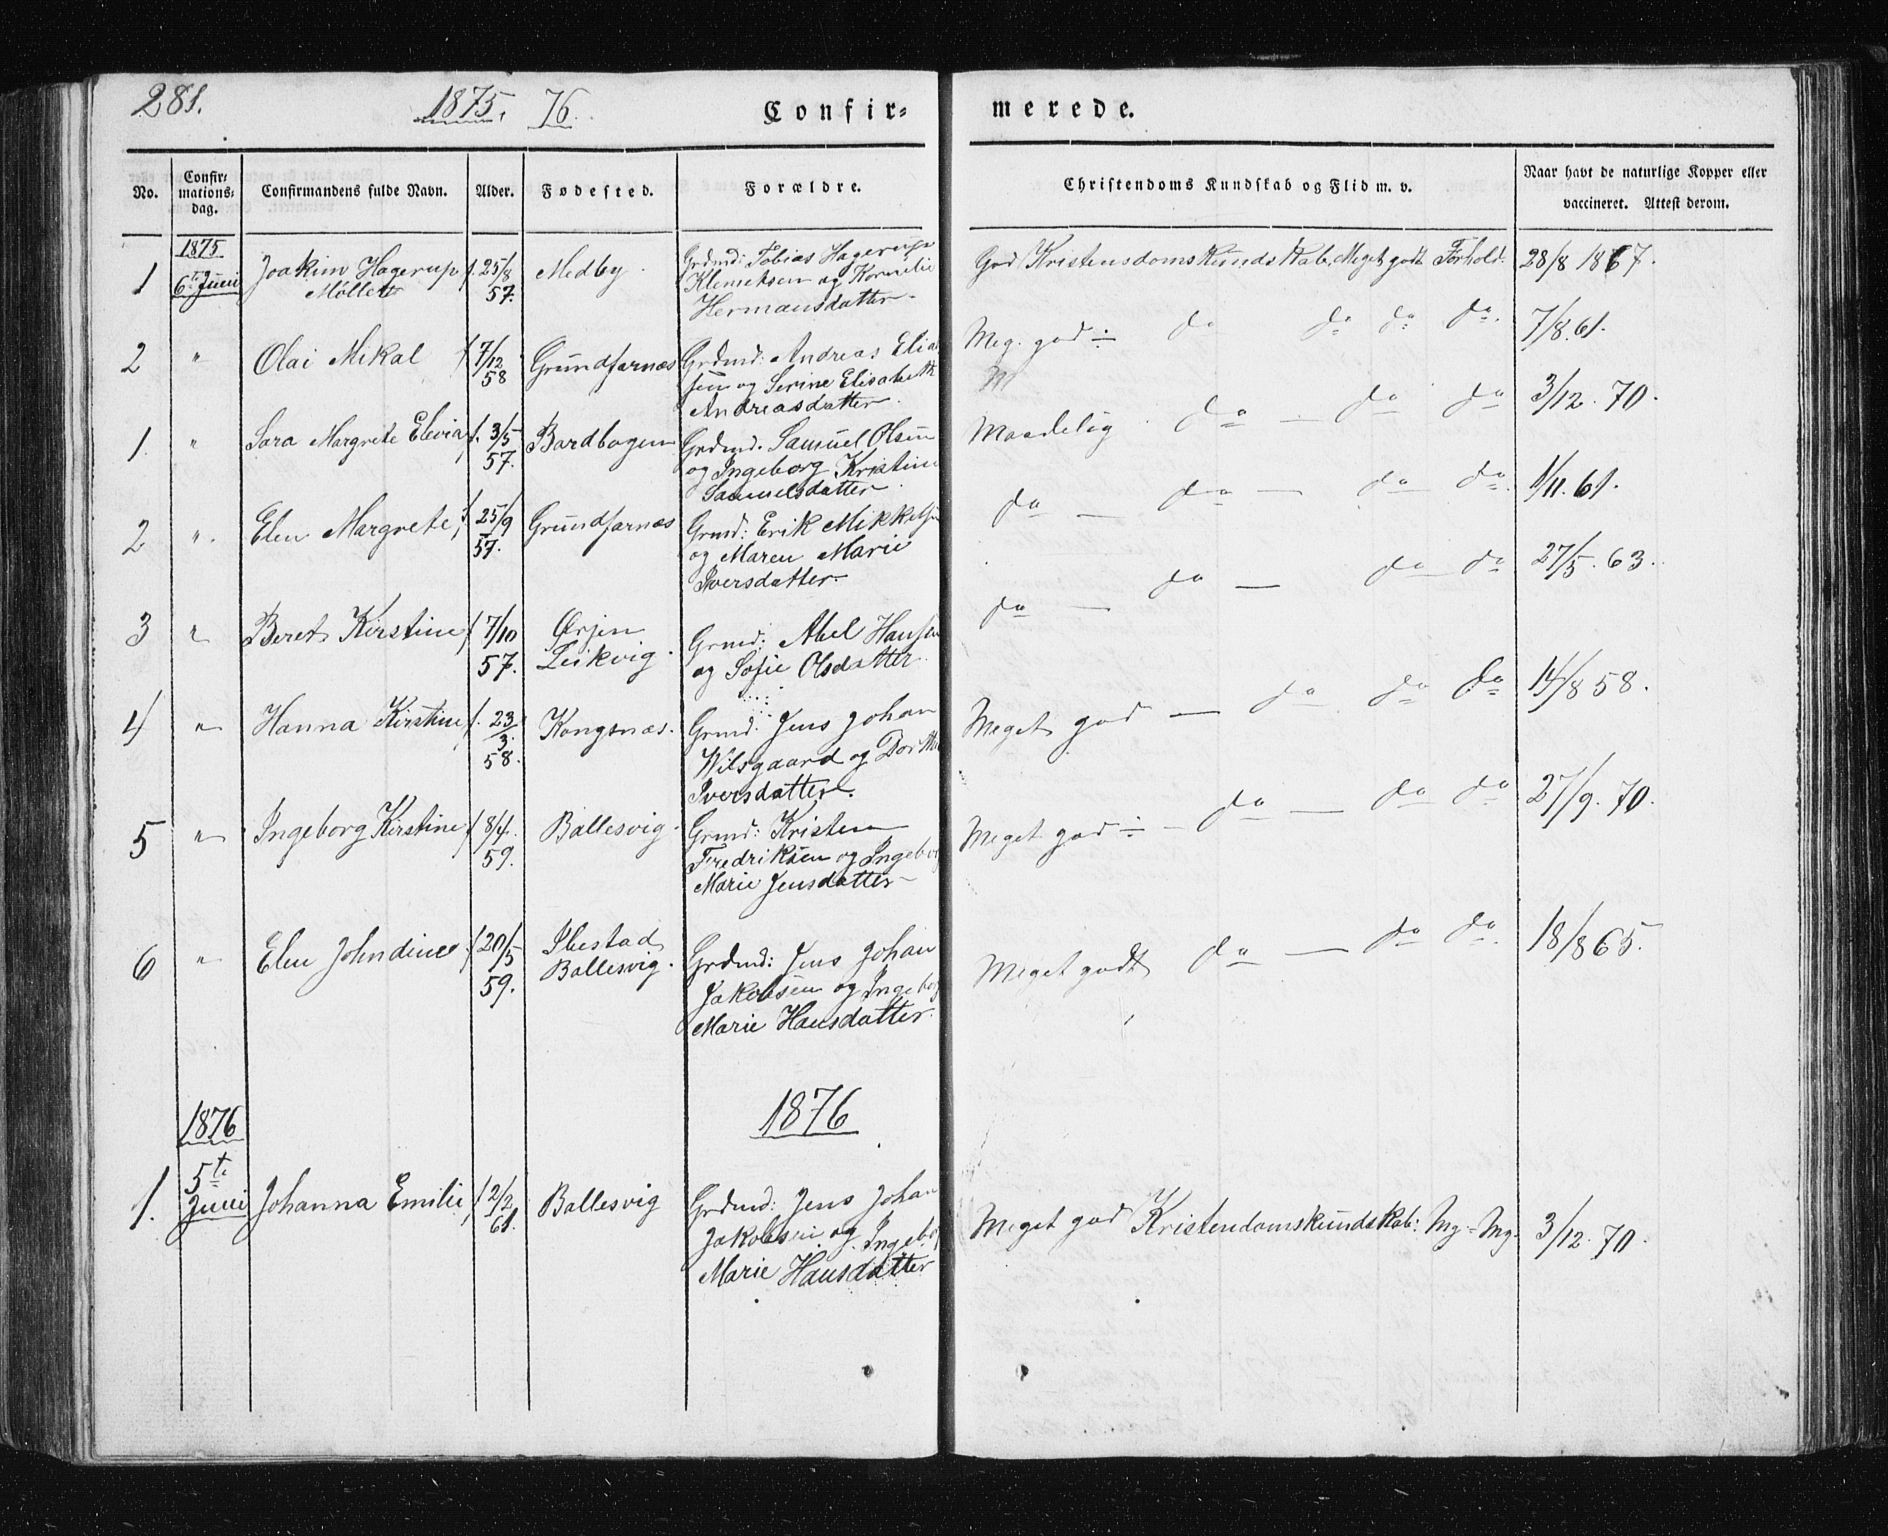 281.
1875, 76.
Confir=
merede.
No.
Confir=
mations=
dag.
Confirmandens fulde Navn.
Alder.
Fødested.
Forældre.
Christendoms Kundskab og Flid m. v.
Naar havt de naturlige Kopper eller
vaccineret. Attest derom.
1875
1 6te Juni Joakim Hagerup f. 25/8 Medby. Grdmd: Tobias Hagerup
57. Klemetsen og Kornelie
Hermansdatter.
God Kristensdomskundskab. Meget godt Forhold. 28/8 1867.
2 " Olai Mikal f 7/12 Grundfarnæs Grdmd: Andreas Elia
58 sen og Serine Elisabeth
Andreasdatter.
Meg. god ÷ do do do do. 7/8.61.
1. " Sara Margrete Elevia, f. 3/5 Bardbogen Grdmd. Samuel Olsen
57. og Ingeborg Kristine
Samuelsdatter.
Maadelig do — do do 3/12.70.
2 ". Elen Margrete, f. 25/9 Grundfarnæs Grmd: Erik Mikkelsen
57. og Maren Marie
Iversdatter.
do — do — do do. 1/11.61.
3 " Beret Kirstine, f 7/10 Ørjen Grmd: Abel Hansen
57. Leikvig. og Sofie Olsdatter
do — do — do do 27/5.63.
4 " Hanna Kirstine, f. 23/3. Kongsnæs. Grmd: Jens Johan
58. Wilsgaard og Dorthe
Iversdatter.
Meget god — do do do 14/8 58.
5 " Ingeborg Kirstine, f 8/4. Ballesvig. Grmd: Kristen
59. Fredriksen og Ingeborg
Marie Jensdatter
Meget god ÷ do — do do 27/9.70.
6 " Elen Johndine f 20/5 Ibestad Grdmd: Jens Johan
59. Ballesvig. Jakobsen og Ingeborg
Marie Hansdatter.
Meget godt do — do do. 18/8 65.
1876
1876
1. 5te Juni Johanna Emilie, f 2/2 Ballesvig Grdmd: Jens Johan
61. Jakobsen og Ingeborg
Marie Hansdatter
Meget god Kristendomskundskab: Mg-Mg. 3/12.70.